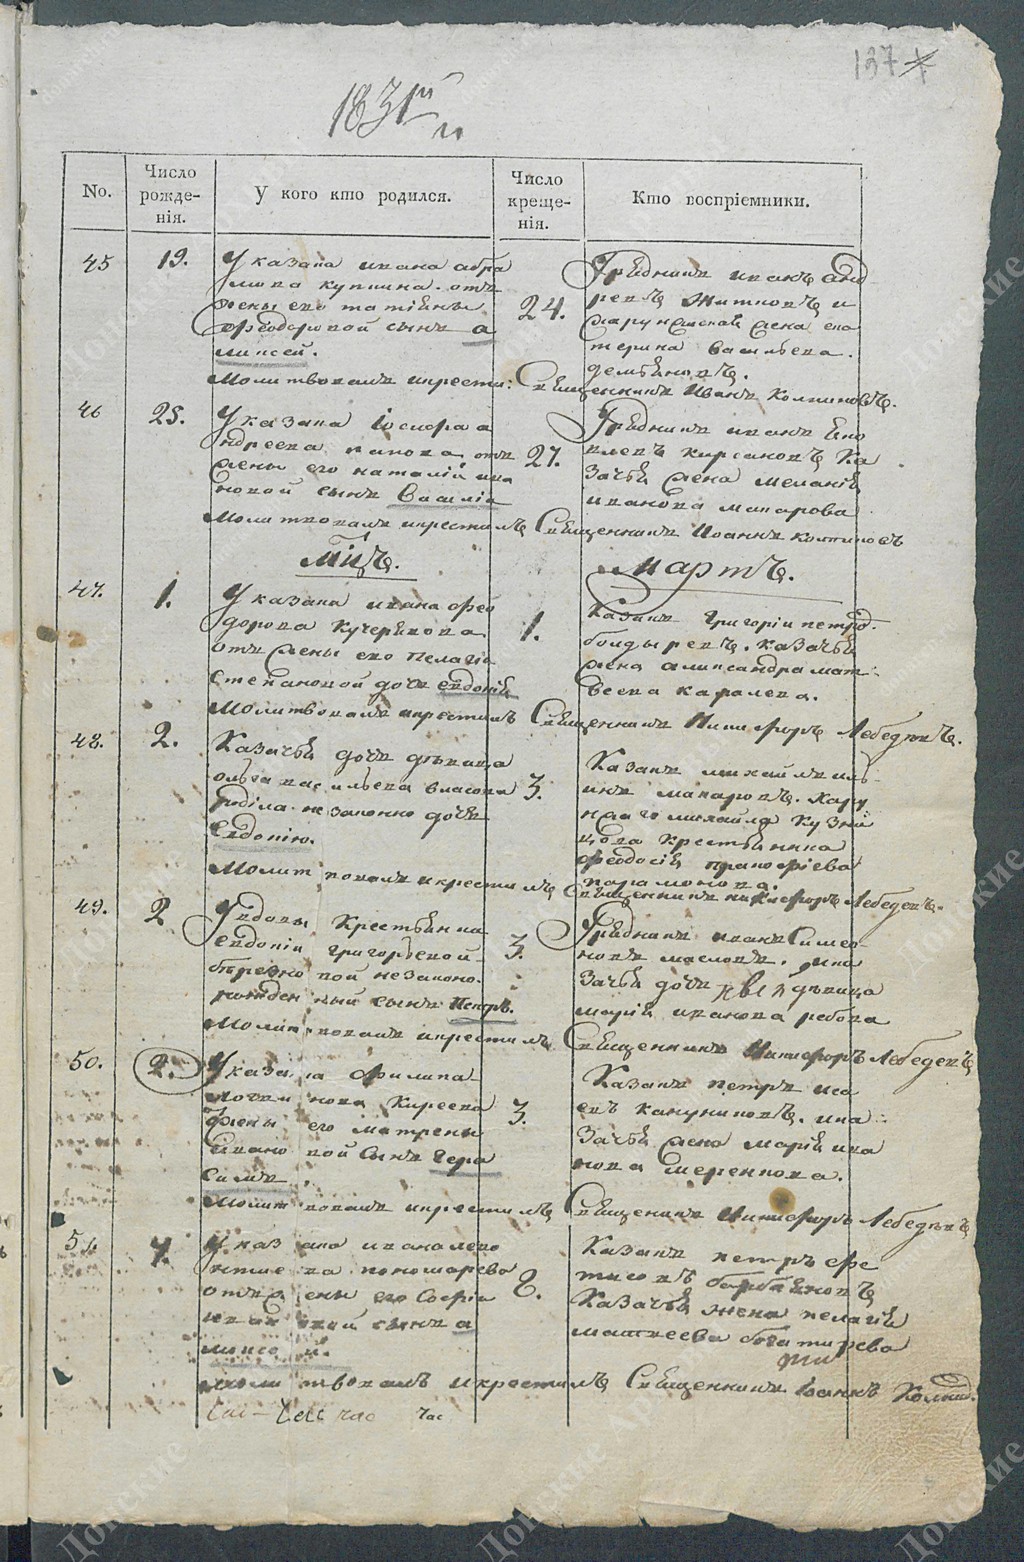 137
1831
No.
Число рожде- нія.
У кого кто родился.
Число креще- нія.
Кто воспріемники.
45
19.
У казака ивана абра
мова купшина. отъ
жены его татіяны
феодоровой сынъ а
лиѯей.
24.
Урядникъ иванъ анд
реевъ житковъ и
харунжская жена ека
терина васильева
демьянова.
Молитвовалъ икрести: Священникъ Иванъ
46
25.
У казака Іосифа а
ндреева попова отъ
жены его наталіи ива
новой сынъ Василіи
27.
Урядникъ иванъ
влевъ кирсановъ ка
зачья жена меланія
иванова макарова
Молитвовалъ икрестилъ Священникъ Иоаннъ
Мцъ. Мартъ.
47.
1.
У казака ивана фео
дорова кучерявова
отъ жены его пелагіи
степановой дочь евдокія
1.
Казакъ григоріи петров.
болдыревъ. казачья
жена александра мат:
веева каралева.
Молитвовалъ икрестилъ Священникъ Никифоръ Лебедевъ.
48.
2.
Казачья дочь дѣвица
ольга васильева власова
родила незаконно дочь
Евдокію.
3.
Казакъ михайла иль-
инъ макаровъ. хару
михайла кузне
цова крестьянка
феодосія прокофіева
парамонова.
Молитвовалъ икрестилъ Священникъ никифоръ Лебедевъ.
49.
2
У вдовы крестьянки
евдокіи григорьевой
незаконно.
рожденный сынъ Петръ.
3.
Урядникъ иванъ Симео-
новъ масловъ. ика
зачья дочь дѣвица
марія иванова рябова
Молитвовалъ икрестилъ Священникъ Никифоръ Лебедевъ
50.
2.
У казака филипа
киреева
жены его матрены
ивановой сынъ Гера
симъ
3.
Казакъ петръ иса
евъ кануниковъ. ика
зачья жена марія ива
нова
Молитвовалъ икрестилъ Священникъ Никифоръ Лебедевъ
51.
7.
У казака ивана лево
нтиева пономарева
отъ жены его Софіи
ивановой сынъ а
лиѯей.
8.
Казакъ петръ фе
тисовъ
казачья жена пелагія
матвеева богатирева
Молитвовалъ икрестилъ Священникъ Іоаннъ
час